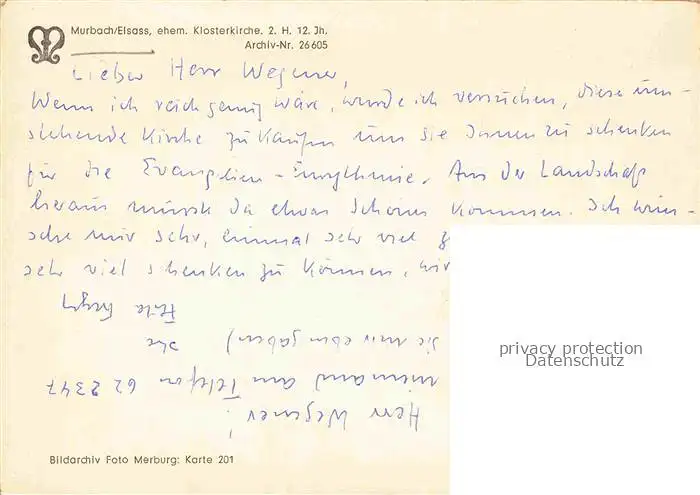 Murbach/Elsass, ehem. Klosterkirche. 2. H. 12. Jh.
Archiv-Nr. 26605
Lieber Herr Wegener,
Wenn ich reich genug wäre, würde ich versuchen, diese um-
stehende Kirche zu kaufen um sie Ihnen zu schenken
für die Evangelien-Eurythmie. Aus der Landschaft
heraus müsste da etwas Schönes kommen. Ich wün-
sche mir sehr, einmal sehr viel
sehr viel schenken zu können,
Ihre
(Herr Wegener!
niemand am Telefon 62 2347
die mir eben gaben)
Bildarchiv Foto Merburg: Karte 201
privacy protection
Datenschutz